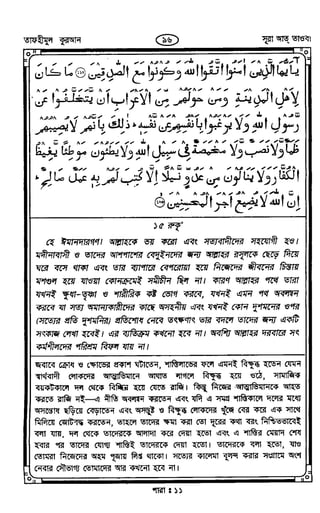 তাফহীমুল কুরআন
৯৬
সূরা আত্ তাওবা
يٰٓاَيُّهَا الَّذِيْنَ اٰمَنُوا اتَّقُوا اللّٰهَ وَكُوْنُوْا مَعَ الصّٰدِقِيْنَ ۝ مَا كَانَ
لِاَهْلِ الْمَدِيْنَةِ وَمَنْ حَوْلَهُمْ مِّنَ الْاَعْرَابِ اَنْ يَّتَخَلَّفُوْا عَنْ
رَّسُوْلِ اللّٰهِ وَلَا يَرْغَبُوْا بِاَنْفُسِهِمْ عَنْ نَّفْسِهٖ ؕ ذٰلِكَ بِاَنَّهُمْ لَا يُصِيْبُهُمْ
ظَمَاٌ وَّلَا نَصَبٌ وَّلَا مَخْمَصَةٌ فِيْ سَبِيْلِ اللّٰهِ وَلَا يَطَئُوْنَ مَوْطِئًا يَّغِيْظُ
الْكُفَّارَ وَلَا يَنَالُوْنَ مِنْ عَدُوٍّ نَّيْلًا اِلَّا كُتِبَ لَهُمْ بِهٖ عَمَلٌ صَالِحٌ ؕ
اِنَّ اللّٰهَ لَا يُضِيْعُ اَجْرَ الْمُحْسِنِيْنَ ۝
১৫ রুকূ'
হে ঈমানদারগণ! আল্লাহকে ভয় করো এবং সত্যবাদীদের সহযোগী হও।
মদীনাবাসী ও তাদের আশপাশের বেদুইনদের জন্য আল্লাহর রসূলকে ছেড়ে দিয়ে
ঘরে বসে থাকা এবং তার ব্যাপারে বেপরোয়া হয়ে নিজেদের জীবনের চিন্তায়
মশগুল হয়ে যাওয়া কোনক্রমেই সমীচীন ছিল না। কারণ আল্লাহর পথে তারা
যখনই ক্ষুধা-তৃষ্ণা ও শারীরিক কষ্ট ভোগ করবে, যখনই এমন পথ অবলম্বন
করবে যা সত্য অমান্যকারীদের কাছে অসহনীয় এবং যখনই কোন দুশমনের ওপর
(সত্যের প্রতি দুশমনির) প্রতিশোধ নেবে তৎক্ষণাৎ তার বদলে তাদের জন্য একটি
সৎকাজ লেখা হবেই। এর ব্যতিক্রম কখনো হবে না। অবশ্যি আল্লাহর দরবারে সৎ
কর্মশীলদের পরিশ্রম বিফল যায় না।
জবাবে ক্রোধ ও ক্ষোভের প্রকাশ ঘটাতেন, শাস্তিলাভের ফলে এমনই বিক্ষুব্ধ হতেন যেমন
স্বার্থবাদী লোকদের আত্মাভিমানে আঘাত লাগলে বিক্ষুব্ধ হয়ে ওঠে, সামাজিক
বয়কটকালে দল থেকে বিচ্ছিন্ন হয়ে যেতে রাজি। কিন্তু নিজের আত্মাভিমানকে আহত
করতে রাজি নই—এ নীতি অবলম্বন করতেন এবং যদি এ সমগ্র শাস্তিকালে দলের মধ্যে
অসন্তোষ ছড়িয়ে বেড়াতেন এবং অসন্তুষ্ট ও বিক্ষুব্ধ লোকদের খুঁজে বের করে এক সাথে
মিলিয়ে জোটবদ্ধ করতেন, তাহলে তাদের ক্ষমা করা তো দূরের কথা বরং নিশ্চিতভাবেই
বলা যায়, দল থেকে তাদেরকে আলাদা করে দেয়া হতো এবং এ শাস্তির মেয়াদ শেষ
হবার পর তাদের যোগ্য শাস্তিই তাদেরকে দেয়া হতো। তাদেরকে বলা হতো, যাও
তোমরা নিজেদের অহম পূজায় লিপ্ত থাকো। সত্যের কালেমা বুলন্দ করার সংগ্রামে অংশ
নেবার সৌভাগ্য তোমাদের আর কখনো হবে না।
পারা ঃ ১১